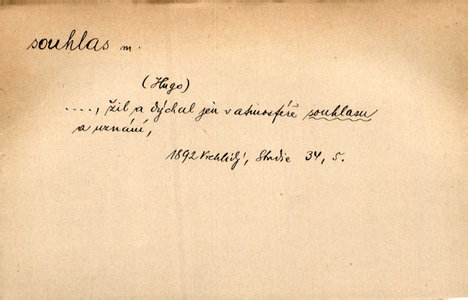 souhlas m.
(Hugo)
...., žil a dýchal jen v atmosféře souhlasu
a uznání,
1892 Vrchlický, Studie 34, 5.